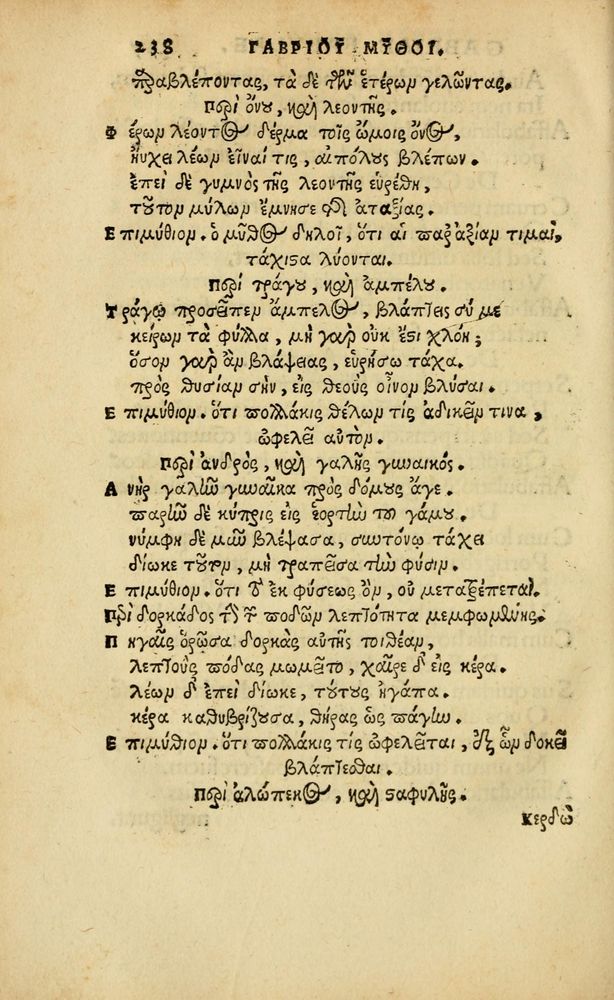 238 ΓΑΒΡΙΟΥ ΜΥΘΟΙ.
παραβλέποντας, τὰ δὲ τῶν ἑτέρων γελῶντας.
Περὶ ὄνου, καὶ λεοντῆς.
Φέρων λέοντος δέρμα τοῖς ὤμοις ὄνος,
ηὔχει λέων εἶναί τις, αἰπόλους βλέπων.
ἐπεὶ δὲ γυμνὸς τῆς λεοντῆς εὑρέθη,
τοῦτον μύλων ἔμνησε τῆς ἀταξίας.
Ἐπιμύθιον. ὁ μῦθος δηλοῖ, ὅτι αἱ παρ' ἀξίαν τιμαὶ,
τάχιστα λύονται.
Περὶ τράγου, καὶ ἀμπέλου.
Τράγῳ προσεῖπεν ἄμπελος, βλάπτεις σύ με
κείρων τὰ φύλλα, μὴ γὰρ οὐκ ἔστι χλόη;
ὅσον γὰρ ἂν βλάψειας, εὑρήσω τάχα.
πρὸς θυσίαν σὴν, εἰς θεοὺς οἶνον βλύσαι.
Ἐπιμύθιον. ὅτι πολλάκις θέλων τίς ἀδικεῖν τινα,
ὠφελεῖ αὐτόν.
Περὶ ἀνδρὸς, καὶ γαλῆς γυναικός.
Ἀνὴρ γαλῆν γυναῖκα πρὸς δόμους ἄγει.
παρῆν δὲ κύπρις εἰς ἑορτὴν τοῦ γάμου.
νύμφη δὲ μῦν βλέψασα, συντόνῳ τάχει
δίωκε τοῦτον, μὴ τραπεῖσα τὴν φύσιν.
Ἐπιμύθιον. ὅτι τὸ ἐκ φύσεως ὂν, οὐ μετατρέπεται.
Περὶ δορκάδος τὴν τῶν ποδῶν λεπτότητα μεμφομένης.
Πηγαῖς ὁρῶσα δορκὰς αὐτῆς τοὶ θέαν,
λεπτοὺς πόδας μωμεῖτο, χαῖρε δ' εἰς κέρα.
λέων δ' ἐπεὶ δίωκε, τούτους ἠγάπα.
κέρα καθυβρίζουσα, θήρας ὡς πάγην.
Ἐπιμύθιον. ὅτι πολλάκις τίς ὠφελεῖται, ἐξ ὧν δοκεῖ
βλάπτεσθαι.
Περὶ ἀλώπεκος, καὶ σταφυλῆς.
Κερδὼ